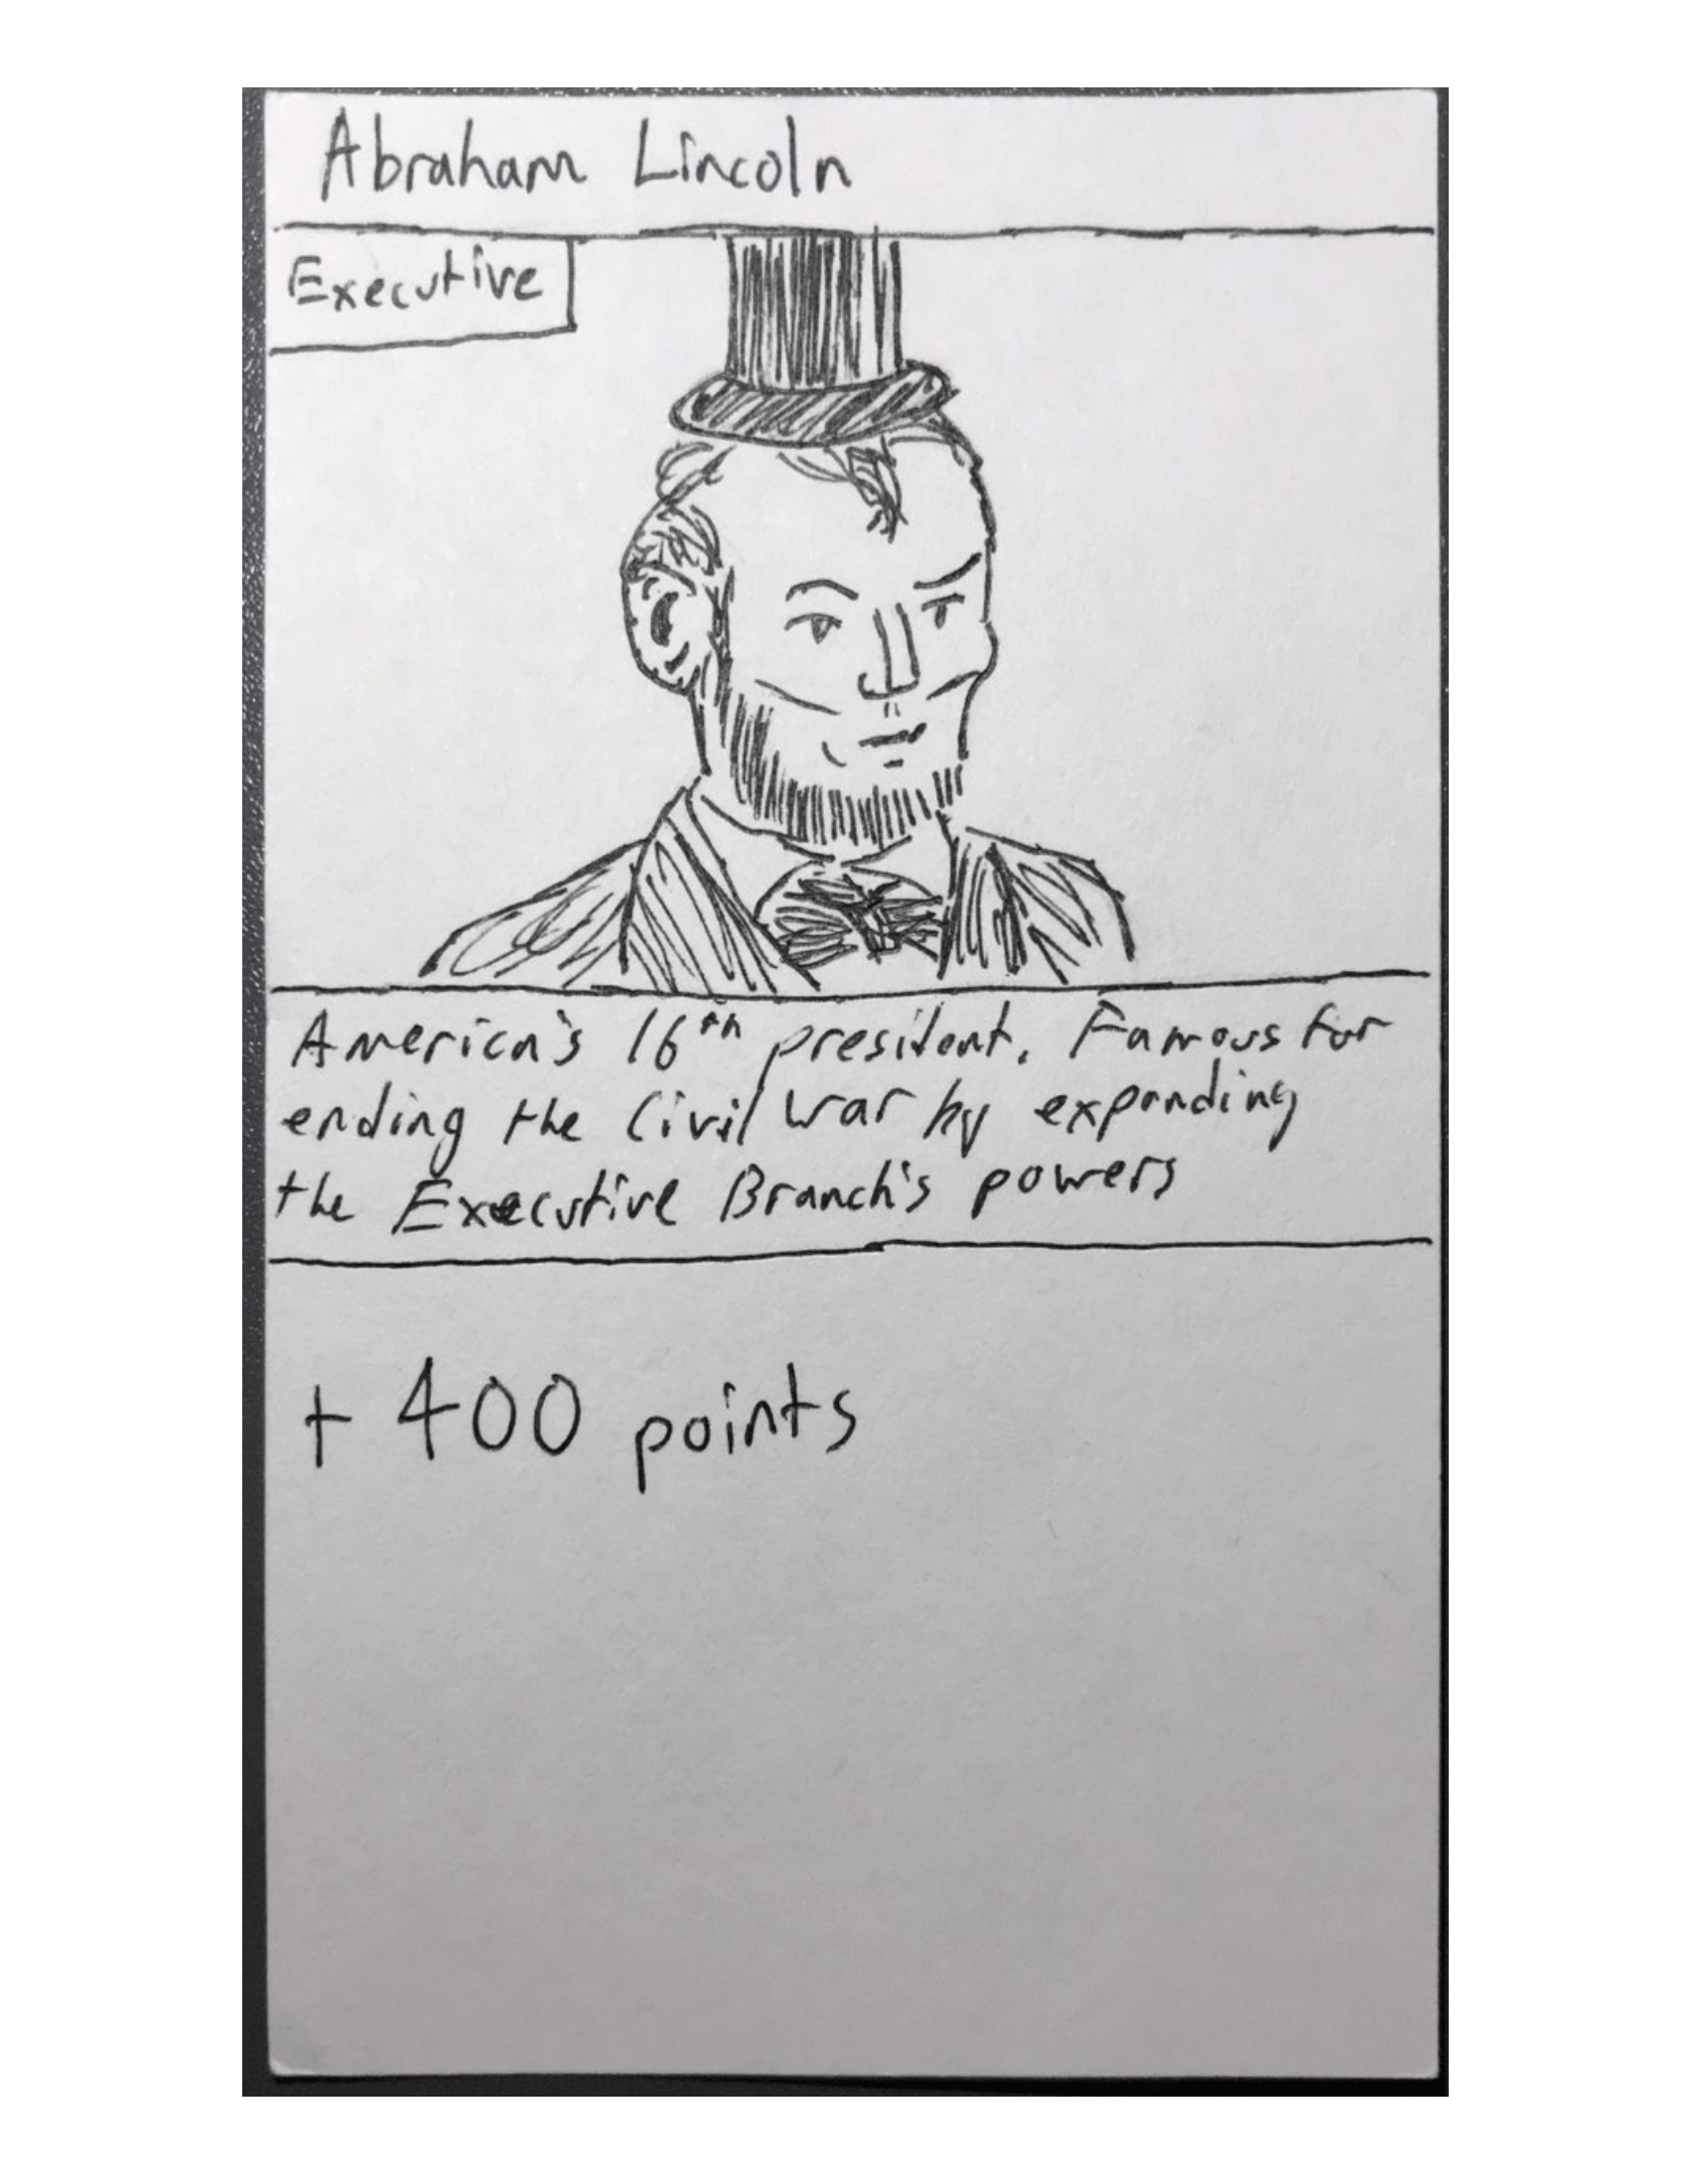 Abraham Lincoln
Executive
America's 16th president. Famous for
ending the Civil War by expanding
the Executive Branch's powers
+ 400 points